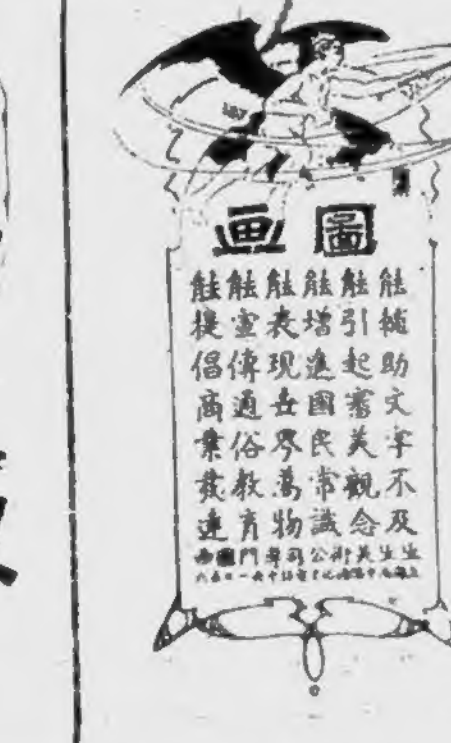 圖画
能輔助文字不及
能引起審美觀念
能增進國民常識
能表現世界萬物
能宣傳通俗教育
能提倡商業發達
生生美術公司專門圖画